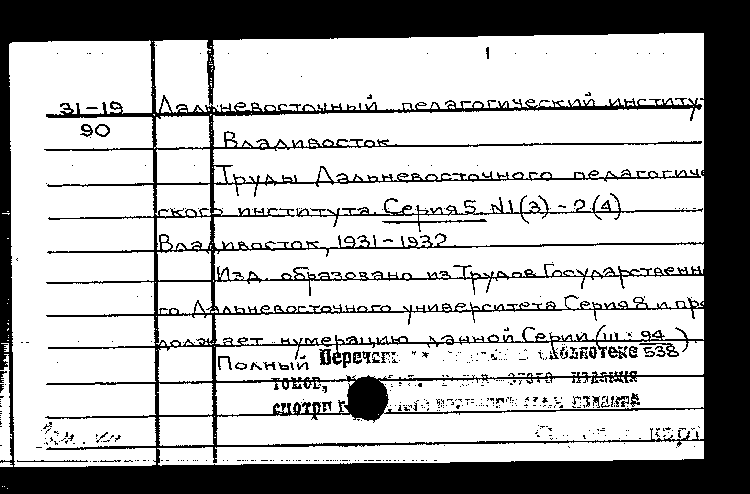 31-19 Дальневосточный педагогический институт
90
Владивосток.
Труды Дальневосточного педагогиче
ского института. Серия 5. N1(3) - 2(4)
Владивосток, 1931-1932.
Изд. образовано из Трудов Государственн
го Дальневосточного университета Серия 8 и про
должает нумерацию данной Серии. (ш: 94
538)
Полный Перечень библиотеке
томов, этого издания
смотри изданий
карт